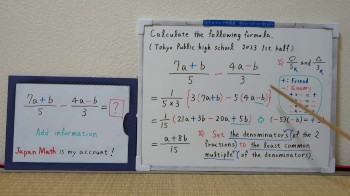 7a+b/5 - 4a-b/3 = ?
Add information
Japan Math is my account!
Calculate the following formula.
(Tokyo Public high school 2023 1st half)
7a+b/5 - 4a-b/3
= 1/5×3 {3(7a+b)-5(4a-b)}
= 1/15 (21a+3b-20a+5b)
= a+8b/15
+: Friend
-: Enemy
Set the denominators of the 2
fractions to the least common
multiple (of the denominators).